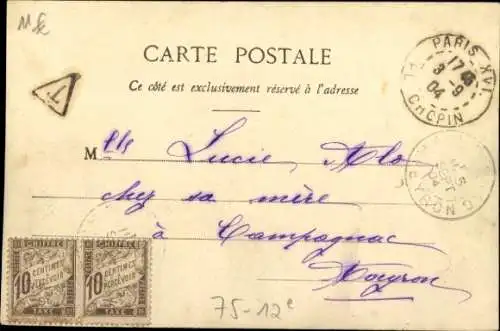 CARTE POSTALE
Ce côté est exclusivement réservé à l'adresse
PARIS XVI
PL. CHOPIN
17
3 - 9
04
T
Mlle Lucie
chez sa mère
à Campagnac
Aveyron
CHIFFRE CHIFFRE
10 CENTIMES À PERCEVOIR 10 CENTIMES À PERCEVOIR
TAXE TAXE
75-12e